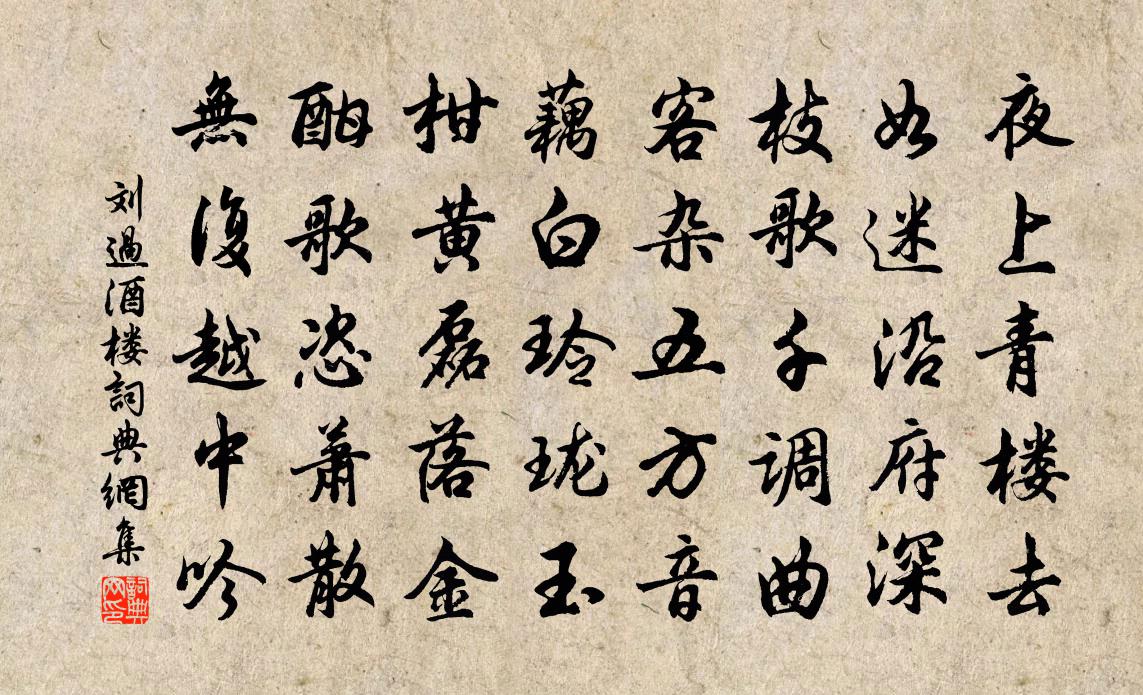 夜上青楼去
如迷沿府深
枝歌千调曲
客杂五方音
藕白玲珑玉
柑黄磊落金
酣歌恣萧散
無復越中吟
刘過酒楼詞典網集
詞典网印